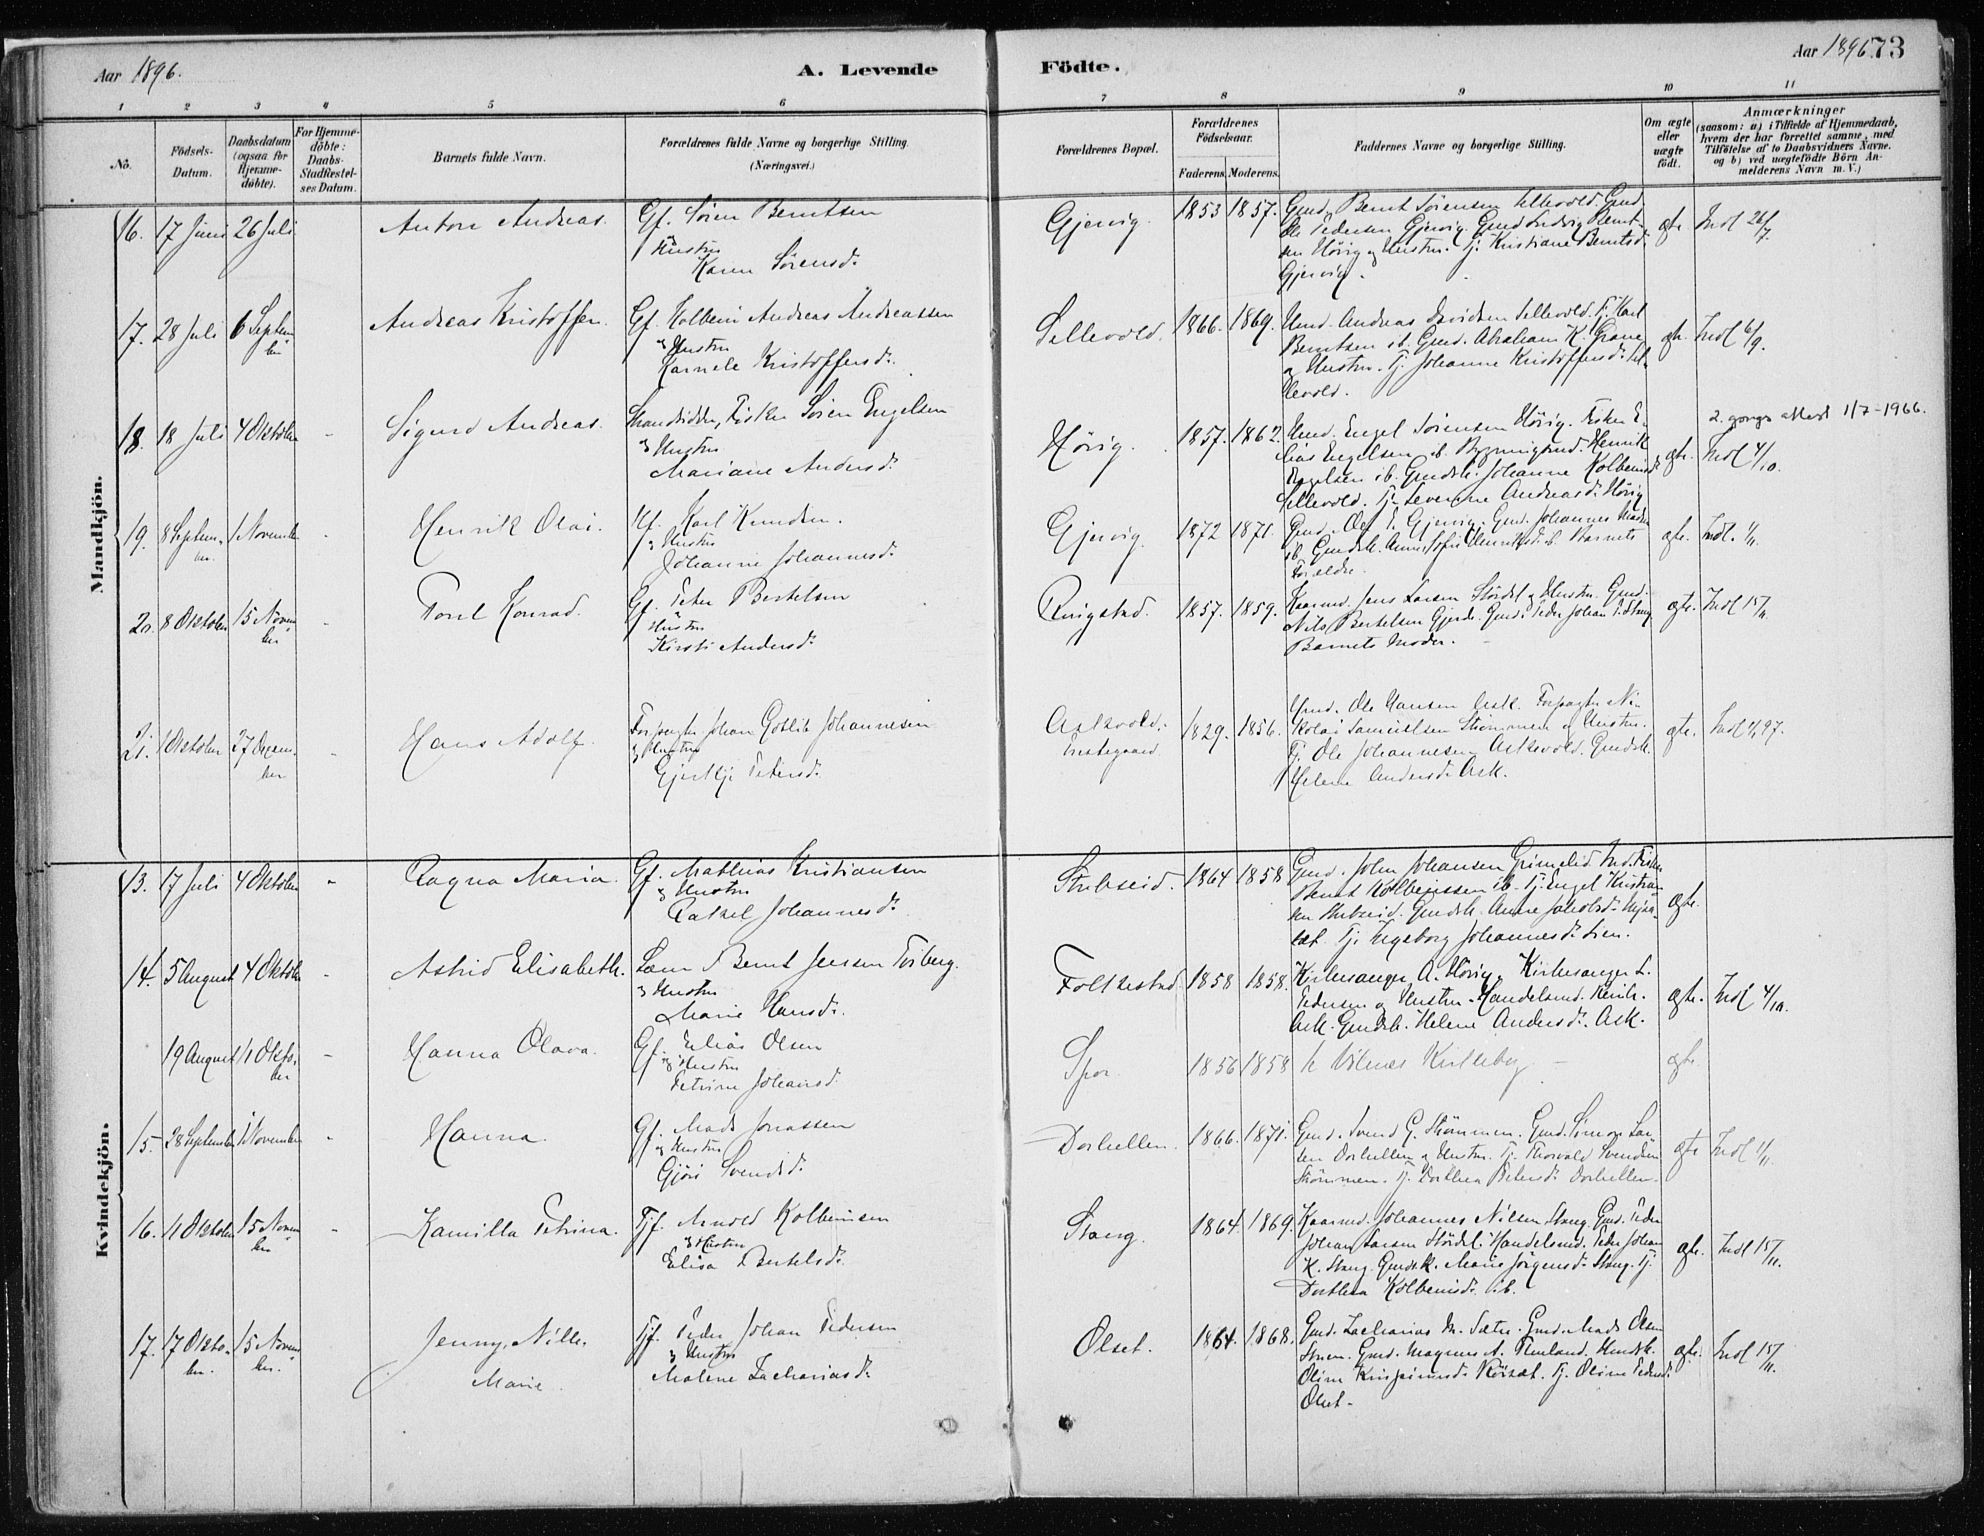 Aar 1896. A. Levende Födte. Aar 1896. 73
1 2 3 4 5 6 7 8 9 10 11
No.
Födsels-Datum.
Daabsdatum (ogsaa for Hjemme-döbte).
For Hjemme-döbte: Daabs-Stadfestel-ses Datum.
Barnets fulde Navn.
Forældrenes fulde Navne og borgerlige Stilling.
(Næringsvei.)
Forældrenes Bopæl.
Forældrenes Födselsaar.
Faderens. Moderens.
Faddernes Navne og borgerlige Stilling.
Om ægte eller uægte födt.
Anmærkninger
(saasom: a) i Tilfælde af Hjemmedaab, hvem der har forrettet samme, med Tilföielse af to Daabsvidners Navne. og b) ved uægtefödte Börn An-melderens Navn m. V.)
Mandkjön.
16. 17 Juni 26 Juli Anton Andreas. Gf. Sören Berntsen
og Hustru
Karen Sörensd.
Gjervig. 1853 1857. Gmd. Bernt Sörensen Sellevold. Gmd.
Ole Pedersen Gjervig. Gmd Ludvig Bernt-
sen Hövig og Hustru. Tj. Kristiane Berntsd.
Gjervig.
gte Indl 26/7.
17. 28 Juli 6 Septem-ber Andreas Kristoffer. Gf. Kolbein Andreas Andreassen
og Hustru
Karnele Kristoffersd.
Sellevold. 1866. 1869. Umd. Andreas Davidsen Sellevold. Tj. Karl
Berntsen ib. Gmd. Abraham K. Grane
og Hustru. Tj. Johanne Kristoffersd. Sel-
levold.
gte. Indl 6/9.
18. 18 Juli 4 Oktober - Sigurd Andreas. Strandsidder, Fisker Sören Engelsen
og Hustru
Mariane Andersd.
Hövig. 1857. 1862. Umd. Engel Sörensen Hövig. Fisker E-
lias Engelsen ib. Bygningsmd. Henrik
Engelsen ib. Gmdsk. Johanne Kolbeinsd.
Sellevold. Tj. Severine Andreasd. Hövig
gte. Indl 4/10.
2. gangs attest 1/7-1966.
19. 8 Septem-ber. 1 November - Henrik Olai. Gf. Karl Knudsen.
og Hustru
Johanne Johannesd.
Gjervig. 1872 1871. Gmd. Ole E. Gjervig. Gmd. Johannes Madsen
ib. Gmdsk. Anne Sofie Henriksd. ib. Barnets
Forældre.
gte. Indl. 1/11.
20. 8 Oktober 15 Novem-ber - Torel Konrad. Gf. Peter Bertelsen
og Hustru
Kirsti Andersd.
Ringstad. 1857. 1859. Kaarmd. Jens Larsen Stördel og Hustru. Gmd.
Nils Bertelsen Gjerde. Gmd. Peder Johan P. Stang
Barnets Moder.
gte. Indl 15/11.
21. 1 Oktober 27 Decem-ber - Hans Adolf. Forpagter Johan Gotlib Johannesen
og Hustru
Gjertje Petersd.
Askvold. Prestegaard 1829. 1856. Gmd. Ole Hansen Ask. Forpagter Ni-
kolai Samuelsen Strömmen og Hustru.
Tj. Ole Johannesen Askvold. Gmdsk.
Helene Andersd. Ask.
gte.
Kvindekjön.
13. 17 Juli 4 Oktober - Ragna Maria. Gf. Mathias Kristiansen
og Hustru
Rakel Johannesd.
Stubseid. 1864 1858 Gmd. John Johansen Grimelid. Ind. Fisker
Bernt Kolbeinssen ib. Tj. Engel Kristian-
sen Stubseid. Gmdsk. Anne Jakobsd.
Tj. Ingeborg Johannesd. Lien.
gte.
14. 5 August 4 Oktober - Astrid Elisabeth. Lærer Bernt Jensen Torberg.
og Hustru
Marie Hansd.
Folkestad. 1858 1858. Kirkesanger A. Hövig. Kirkesanger L.
Pedersen og Hustru. Handelsmd. Henrik
Ask. Gmdsk. Helene Andersd. Ask.
gte. Indl 4/10.
19 August 11 Okto-ber - Hanna Olava. Gf. Elias Olsen
og Hustru
Petrine Johansd.
Spor. 1856 1858 Se Vilnes Kirkebog - gte.
15. 28 September 1 November - Hanna. Gf. Mads Jonassen
og Hustru
Gjöri Svendsd.
Dorhellen. 1866. 1871. Gmd. Svend G. Strömmen. Gmd. Simon Lar-
sen Dorhellen og Hustru. Tj. Thorvald Svendsen
Strömmen. Tj. Dorthea Petersd. Dorhellen.
gte Indl 1/11.
16. 11 Oktober 15 Novem-ber - Kamilla Petrina. Tjf. Arnold Kolbeinsen
og Hustru
Elisa Bertelsd.
Stang. 1864. 1869. Kaarmd. Johannes Nilsen Stang. Gmd. Peder
Johan Larsen Stördel. Handelsmd. Peder Johan
K. Stang. Gmdsk. Marie Jörgensd. Stang. Tj.
Dorthea Kolbeinsd. ib.
gte. Indl 15/11.
17. 17 Okto-ber. 15 Novem-ber. Jenny Nille Marie. Tjf. Peder Johan Pedersen
og Hustru
Malene Zachariasd.
Olset. 1864. 1868. Gmd. Zacharias M. Sætre. Gmd. Mads Olsen
Gmd. Magnus A. Gmdsk.
Tj. Oline Pedersd.
Olset.
gte. Indl 15/11.